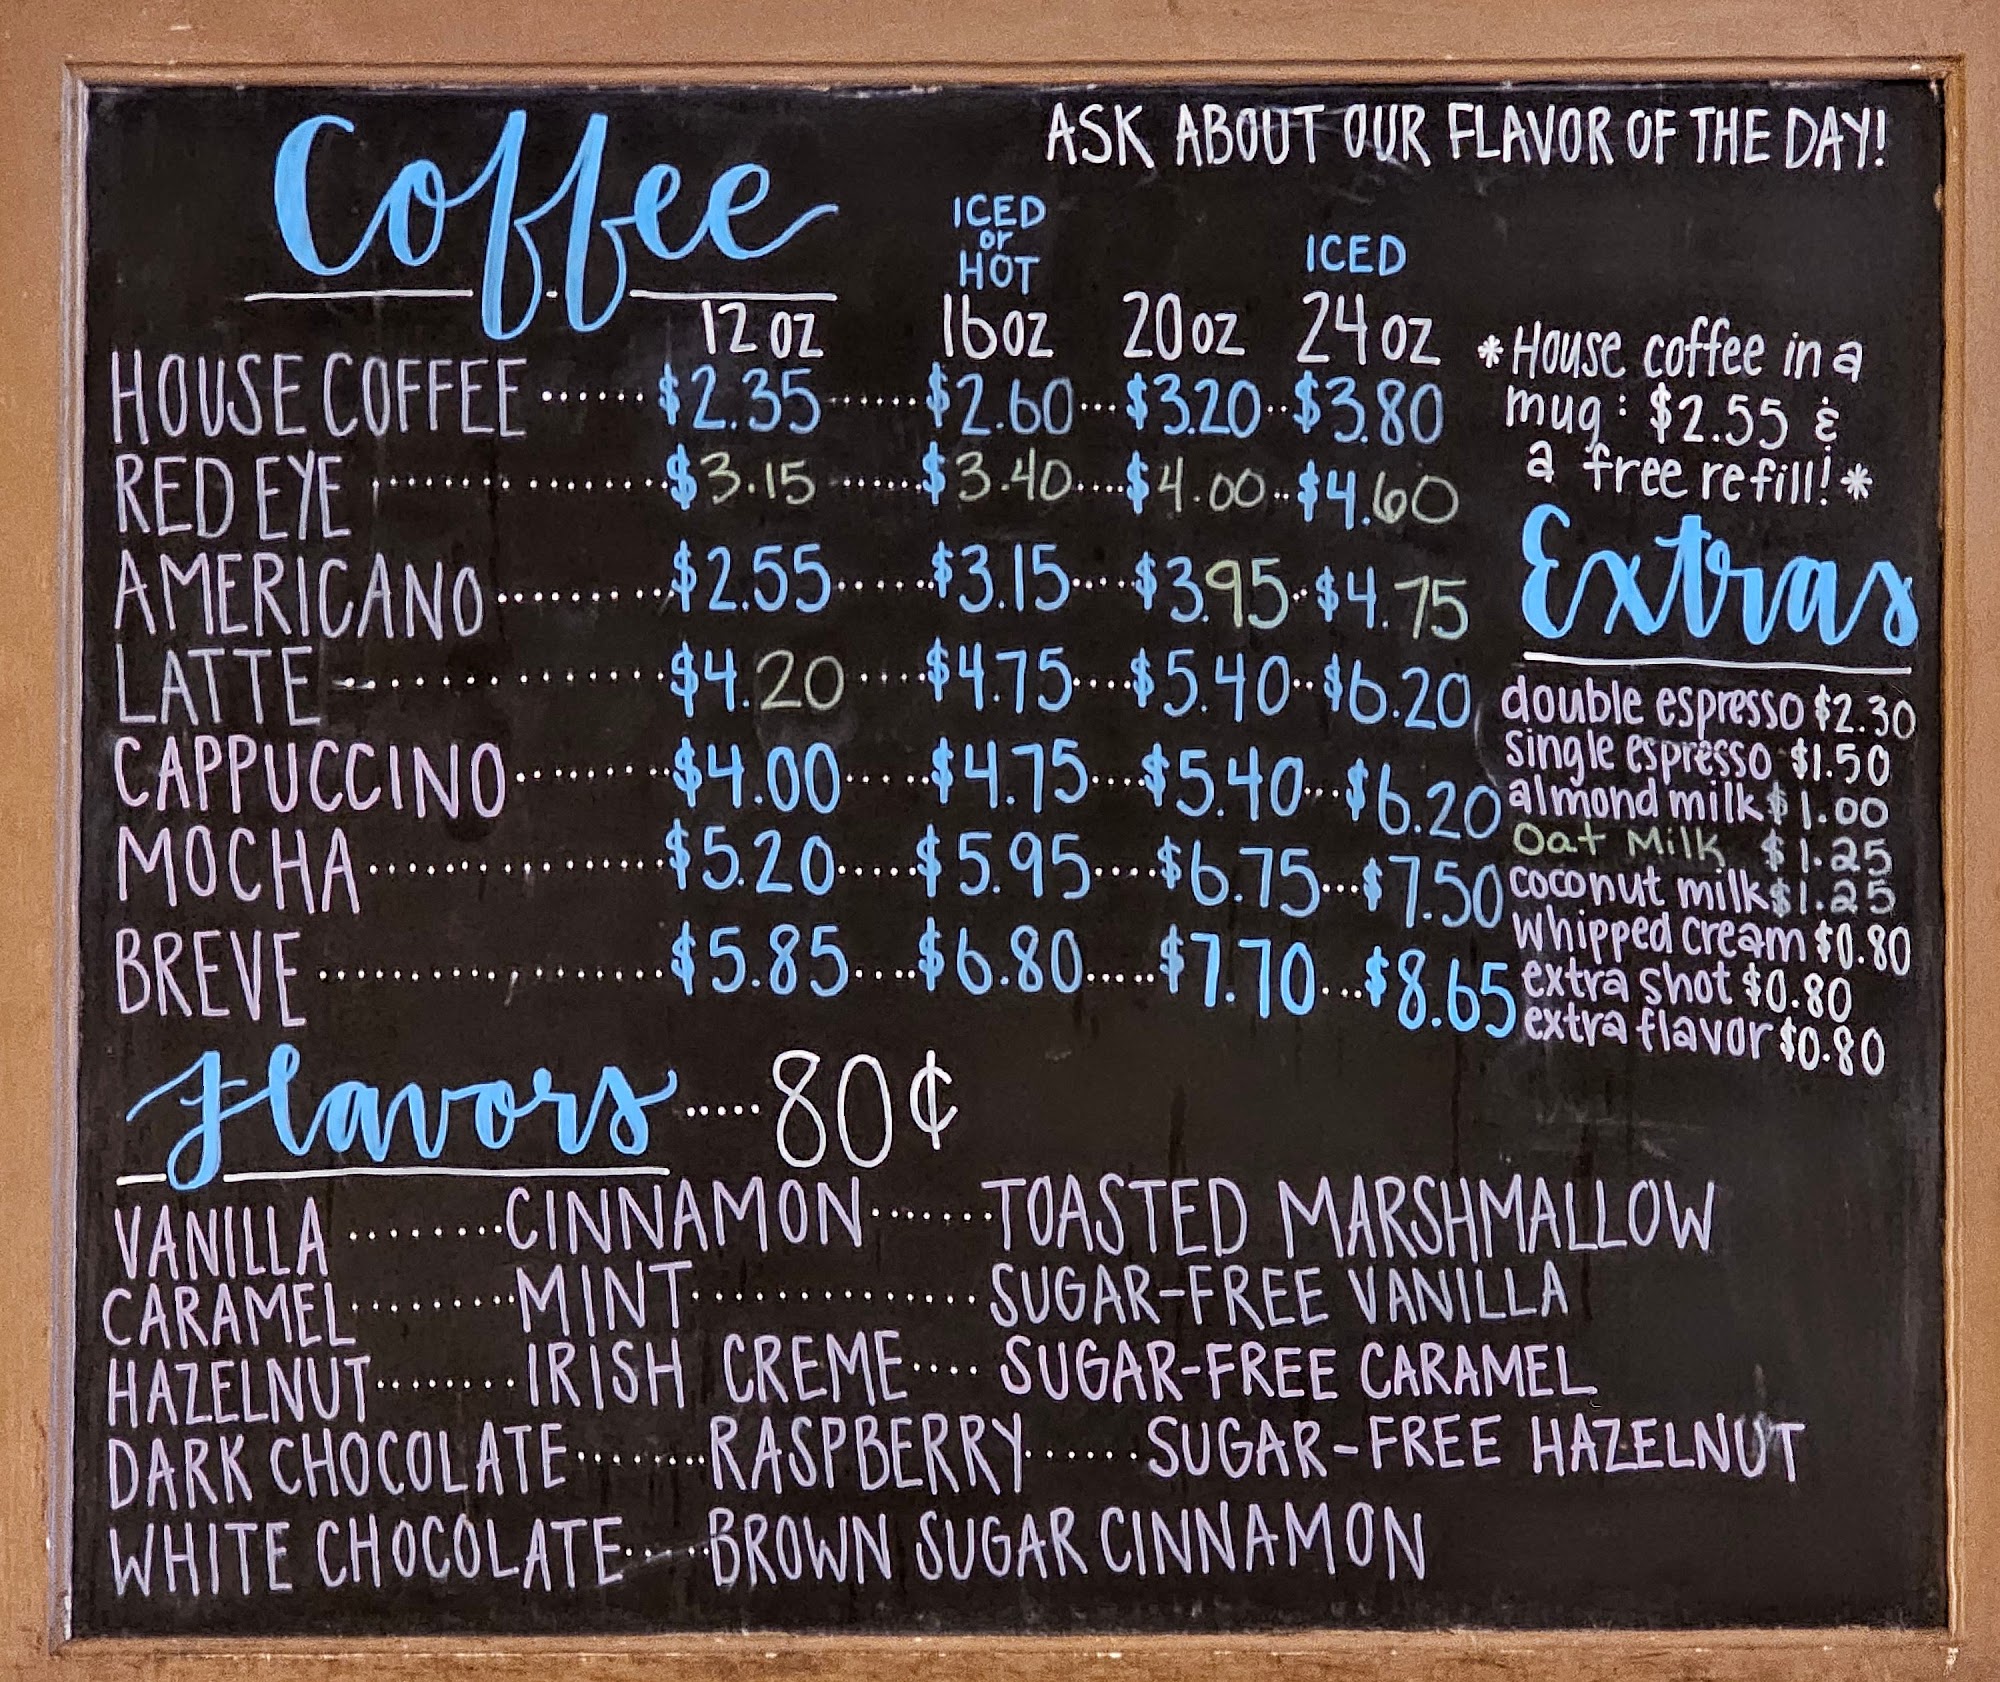 Coffee
ASK ABOUT OUR FLAVOR OF THE DAY!
ICED
or
HOT
ICED
12 oz 16 oz 20 oz 24 oz
HOUSE COFFEE ........ $2.35 ...... $2.60 ... $3.20 .. $3.80
RED EYE ........ $3.15 ...... $3.40 .... $4.00 .. $4.60
AMERICANO ........ $2.55 ..... $3.15 .... $3.95 . $4.75
LATTE ........ $4.20 .... $4.75 .... $5.40 .. $6.20
CAPPUCCINO ........ $4.00 .... $4.75 ... $5.40 ... $6.20
MOCHA ........ $5.20 ..... $5.95 .... $6.75 ... $7.50
BREVE ........ $5.85 .... $6.80 ..... $7.70 ... $8.65
*House coffee in a
mug: $2.55 &
a free refill!*
Extras
double espresso $2.30
single espresso $1.50
almond milk $1.00
Oat Milk $1.25
coconut milk $1.25
whipped cream $0.80
extra shot $0.80
extra flavor $0.80
Flavors ..... 80¢
VANILLA ........ CINNAMON ...... TOASTED MARSHMALLOW
CARAMEL ........ MINT ........ SUGAR-FREE VANILLA
HAZELNUT ........ IRISH CREME .... SUGAR-FREE CARAMEL
DARK CHOCOLATE ........ RASPBERRY ...... SUGAR-FREE HAZELNUT
WHITE CHOCOLATE ...... BROWN SUGAR CINNAMON